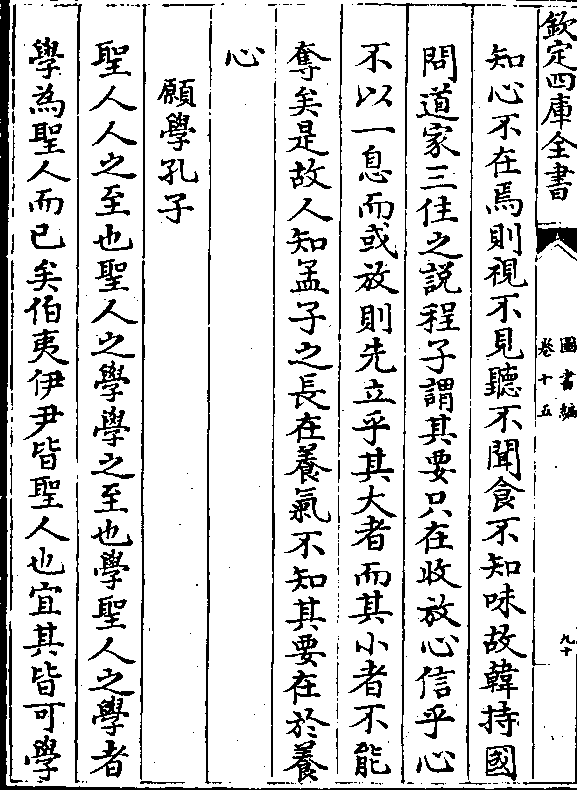 欽定四庫全書
圖書編
卷十五
九十
知心不在焉則視不見聽不聞食不知味故韓持國
問道家三住之説程子謂其要只在收放心信乎心
不以一息而或放則先立乎其大者而其小者不能
奪矣是故人知孟子之長在養氣不知其要在於養
心
願學孔子
聖人人之至也聖人之學學之至也學聖人之學者
學為聖人而已矣伯夷伊尹皆聖人也宜其皆可學